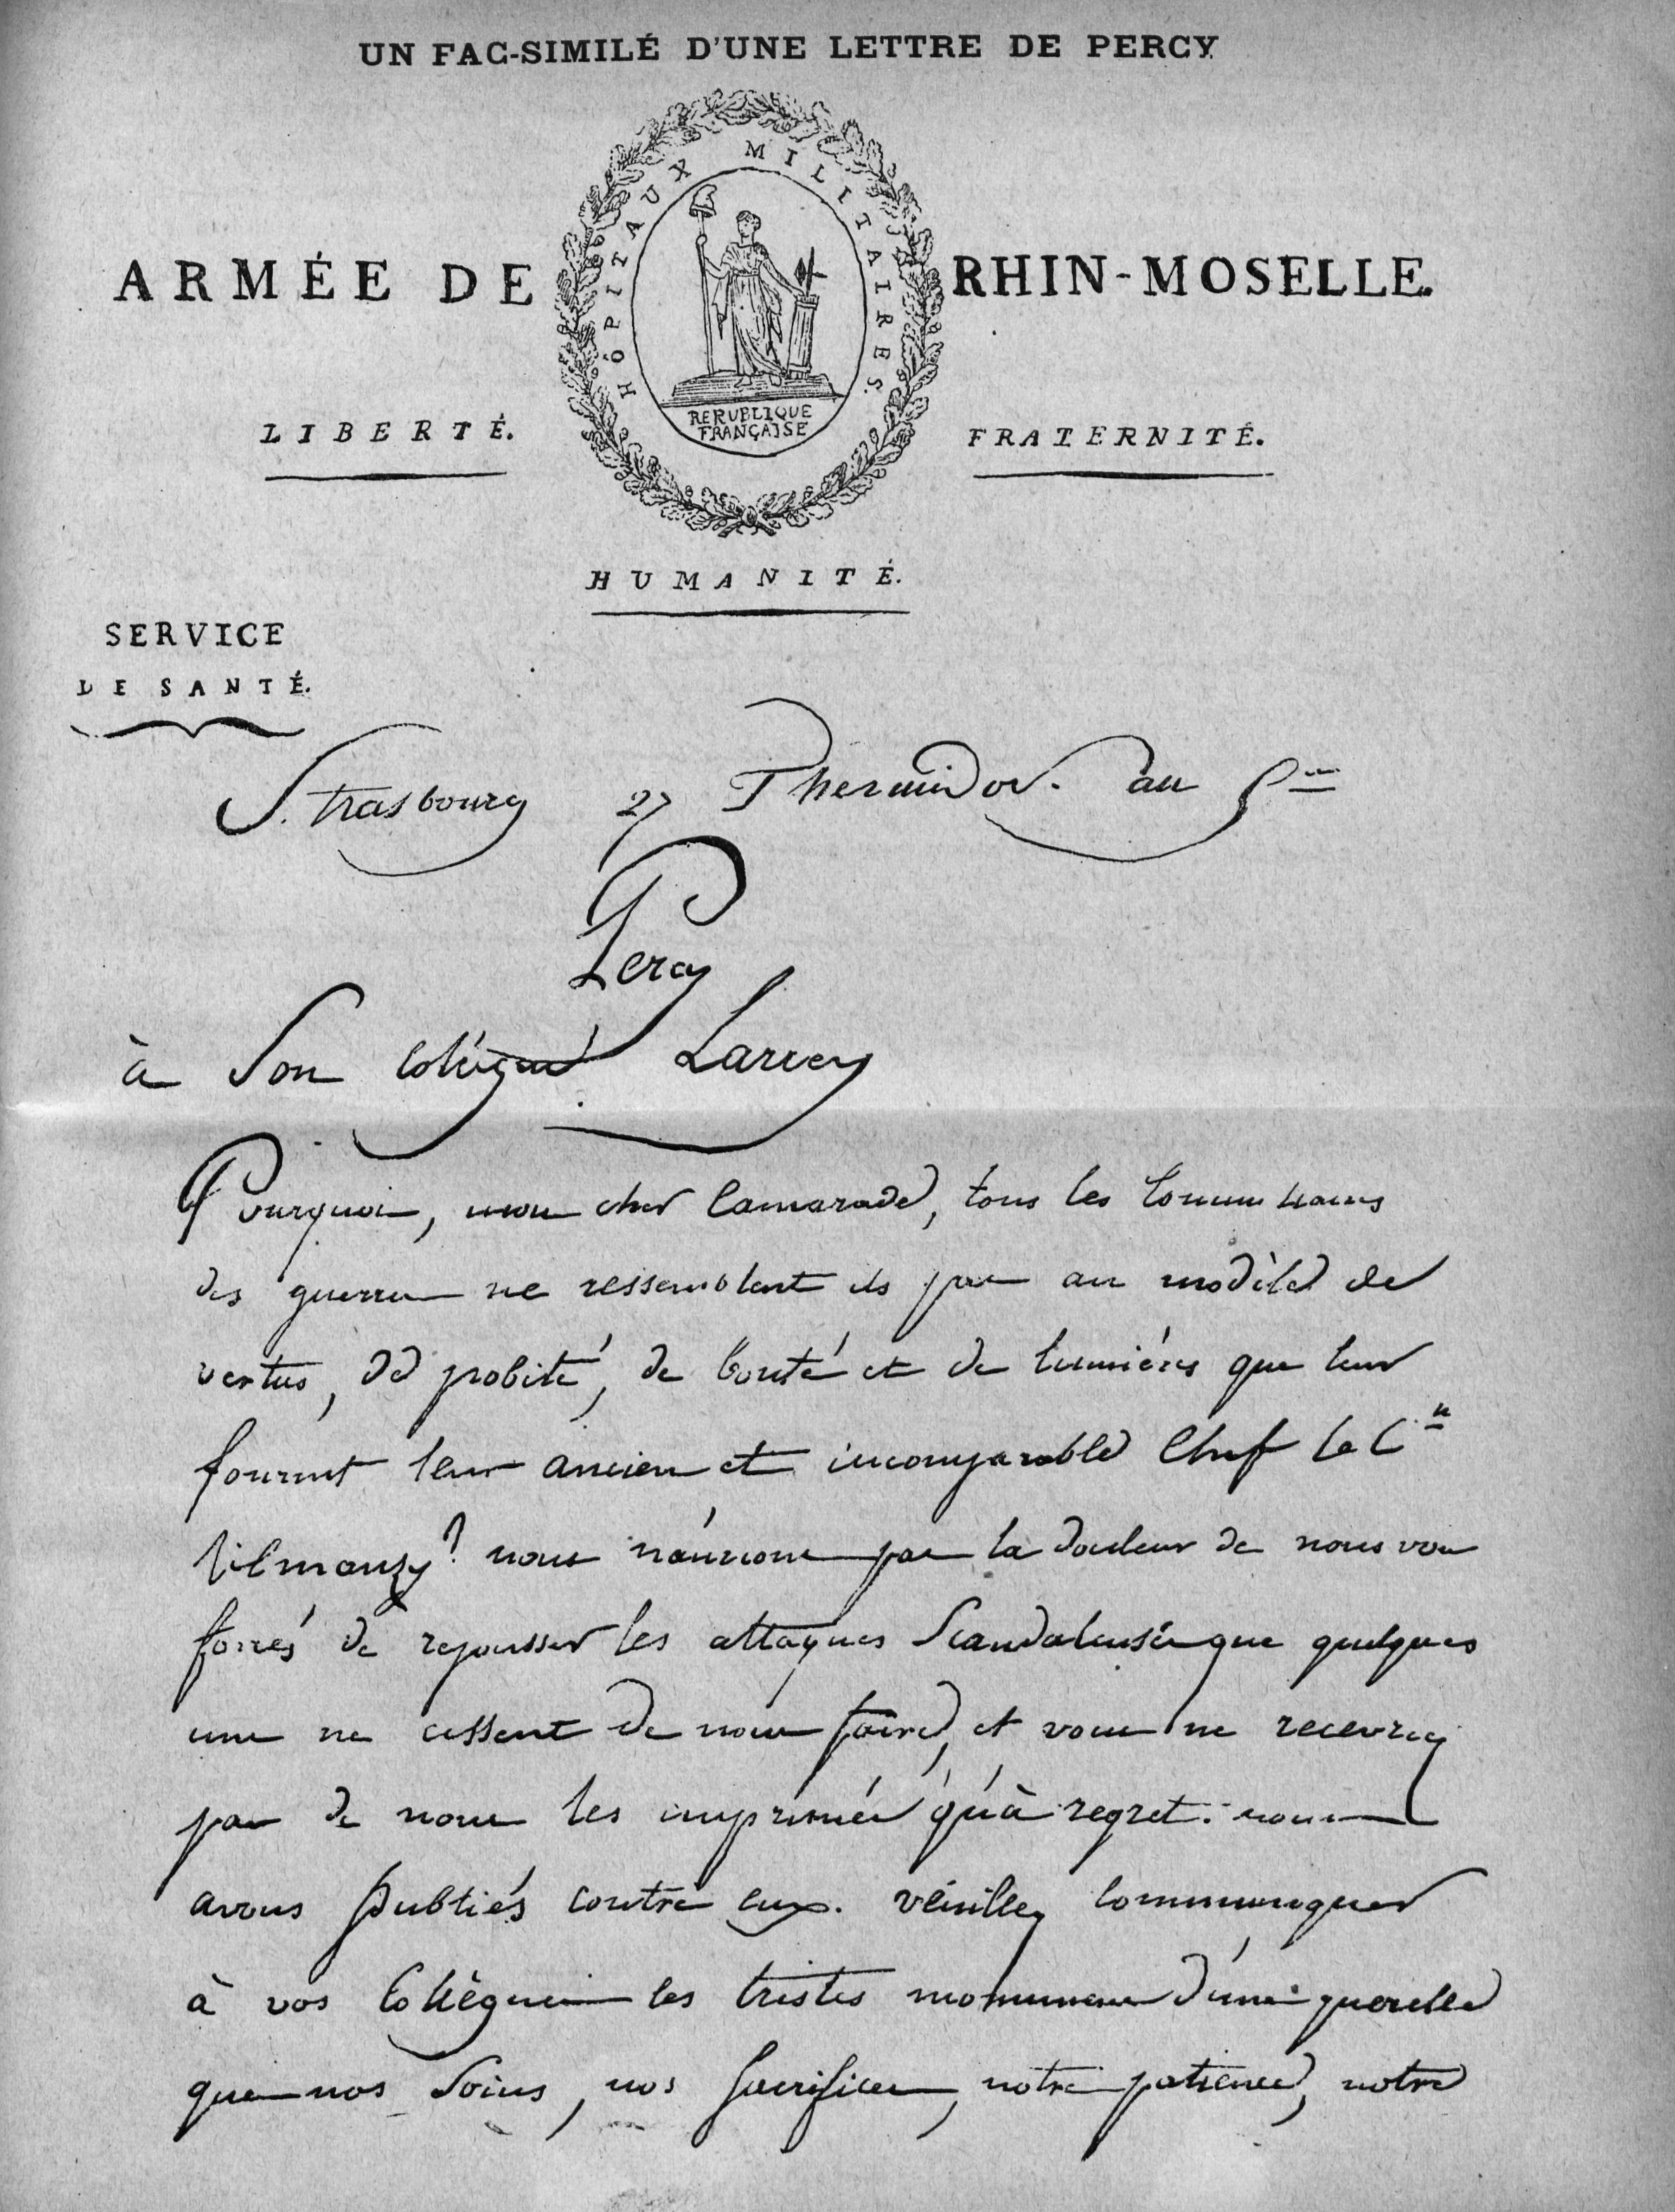 UN FAC-SIMILÉ D'UNE LETTRE DE PERCY
HÔPITAUX MILITAIRES.
ARMÉE DE RHIN-MOSELLE.
REPUBLIQUE
FRANÇAISE
LIBERTÉ. FRATERNITÉ.
HUMANITÉ.
SERVICE
DE SANTÉ.
Strasbourg 27 Thermidor. an 5me
Percy
à Son Collégue Larrey
Pourquoi, mon cher Camarade, tous les Commissaires
des guerres ne ressemblent ils pas au modèle de
vertus, de probité, de bonté et de lumières que leur
fournit leur ancien et incomparable Chef le Cn
Vilmanzy? nous n'aurions pas la douleur de nous voir
forcés de repousser les attaques Scandaleuses que quelques
uns ne cessent de nous faire, et vous ne recevrez
pas de nous les imprimés qu'à regret. nous
avons publiés contre eux. véuillez communiquer
à vos Collègues les tristes monumens d'une querelle
que nos Soins, nos Sacrifices, notre patience, notre